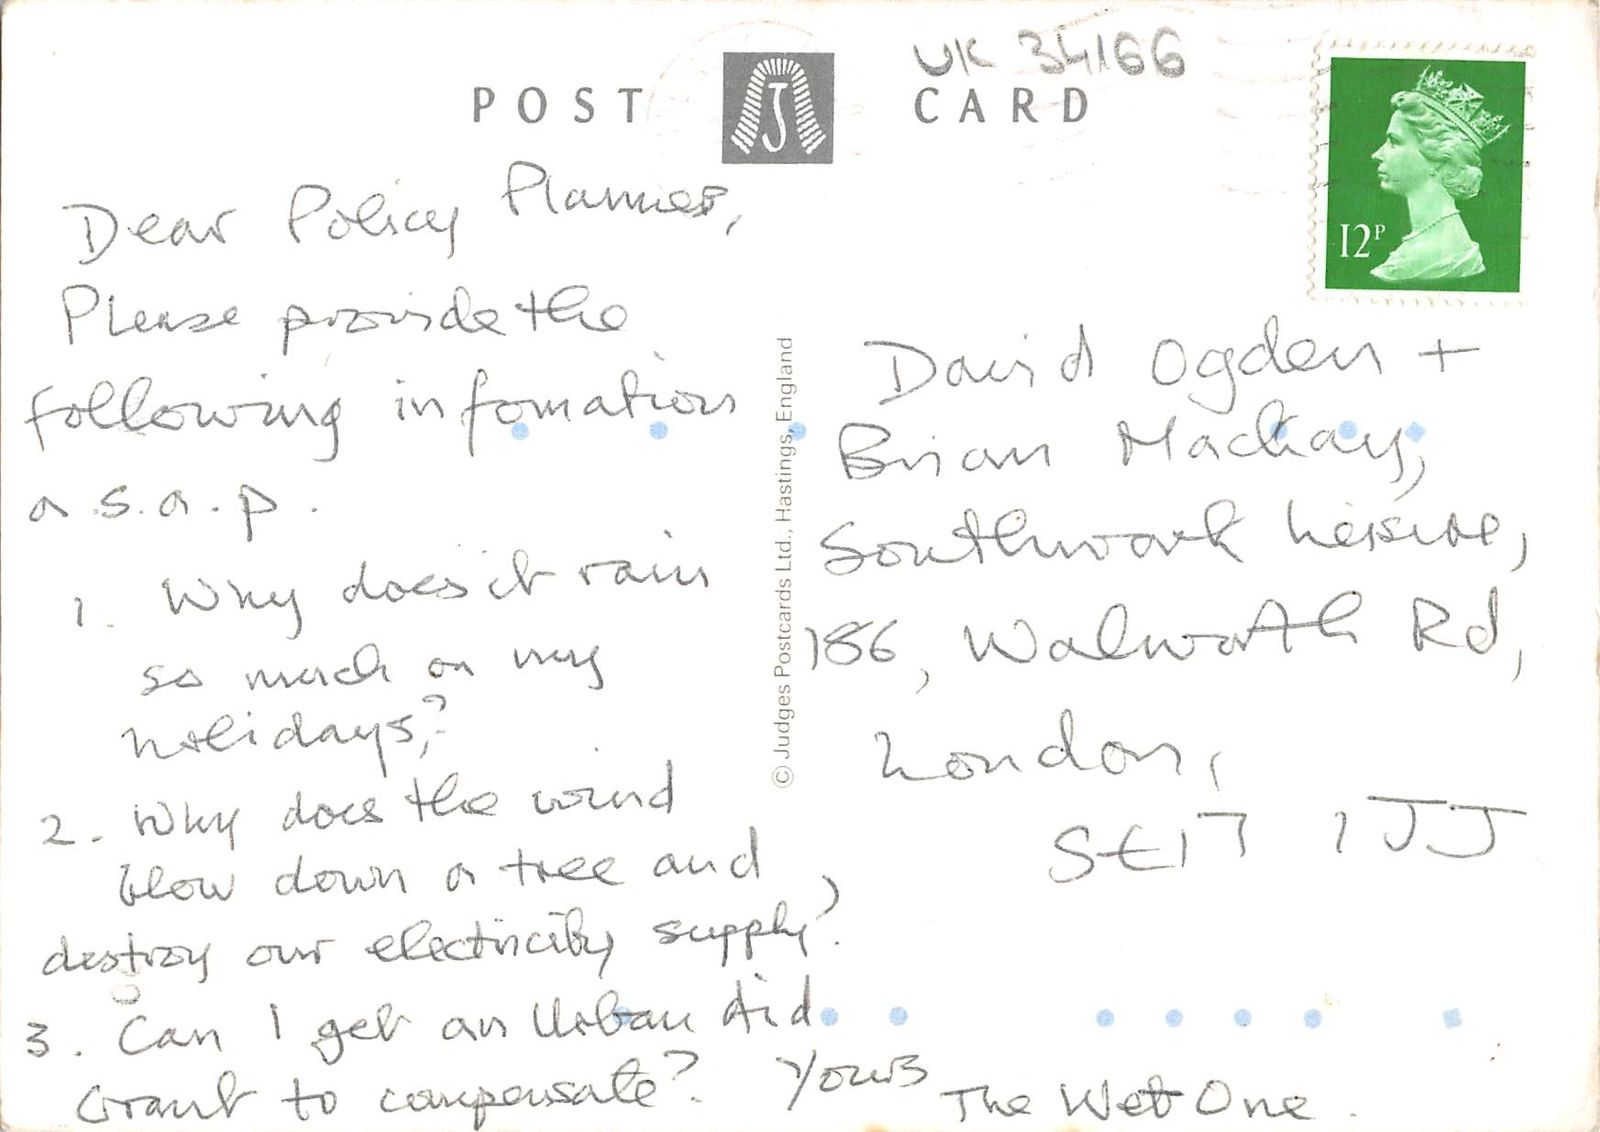 UK 34166
POST CARD
J
12P
Dear Policy Planner,
Please provide the
following infomation
a.s.a.p.
1. Why does it rain
so much on my
holidays,?
2. Why does the wind
blow down a tree and
destroy our electricity supply?
3. Can I get an Urban Aid
Grant to compensate? Yours
The Wet One.
© Judges Postcards Ltd., Hastings, England
David Ogden +
Brian Mackay,
Southwark Leisure,
186, Walworth Rd,
London,
SE17 1JJ